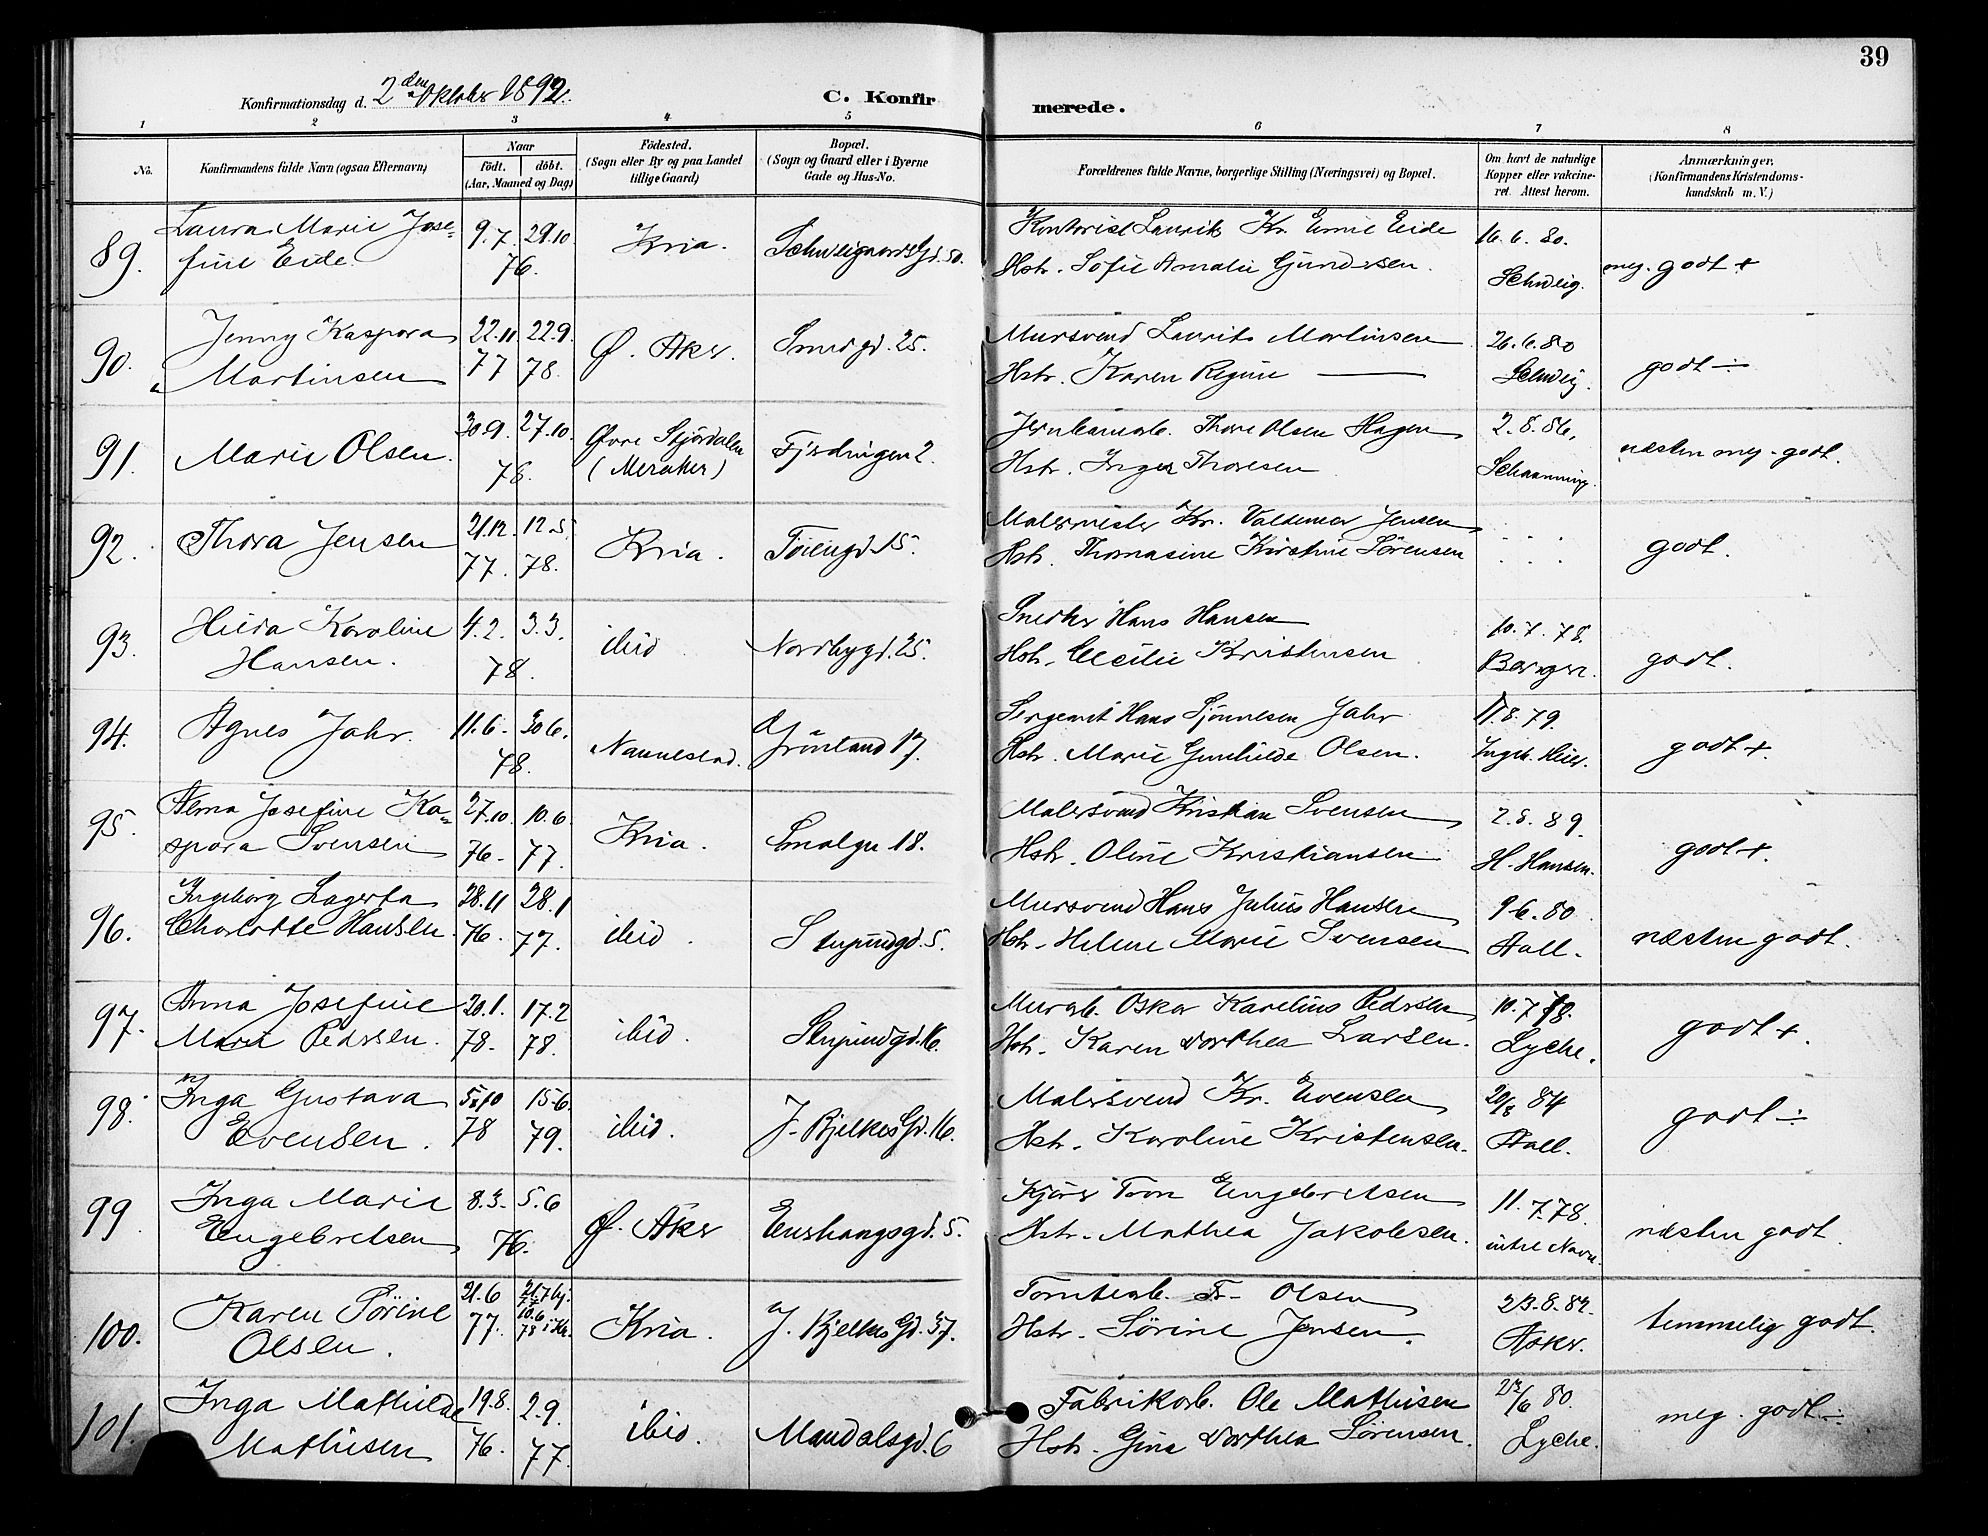 39
Konfirmationsdag d. 2den Oktober 1892.
C. Konfirmerede.
1 2 3 4 5 6 7 8
No.
Konfirmandens fulde Navn (ogsaa Efternavn)
Naar
født. døbt.
(Aar, Maaned og Dag)
Fødested.
(Sogn eller By og paa Landet
tillige Gaard)
Bopæl.
(Sogn og Gaard eller i Byerne
Gade og Hus-No.
Forældrenes fulde Navne, borgerlige Stilling (Næringsvei) og Bopæl.
Om havt de naturlige
Kopper eller vakcine-
ret. Attest herom.
Anmærkninger.
(Konfirmandens Kristendoms-
kundskab m. V.)
Laura Marie Jose- 9.7. 29.10 Kontorist Laurits Kr. Emil Eide 16.6.80.
89. fine Eide. 76. Kria. Schweigaards Gd. 50. Hstr. Sofie Amalie Gundersen. Schweig. meg. godt +
Jenny Kaspara 22.11 22.9. Mursvend Laurits Martinsen 26.6.80
90. Martinsen 77 78. Ø. Aker. Smedgd. 25. Hstr. Karen Regine — Schweig. godt ÷
30.9. 27.10. Øvre Stjørdalen Jernbanearb. Thore Olsen Hagen 2.8.86.
91. Marie Olsen. 78. (Meraker) Fjerdingen 2. Hstr. Inger Thoresen Schaanning. næsten meg. godt.
21.12. 12.5. Malermester Kr. Valdemar Jensen . . .
92. Thora Jensen 77. 78. Kria. Tøiengd. 15. Hstr. Thomasine Kirstine Sørensen . . . godt.
Hilda Karoline 4.2. 3.3. Snedker Hans Hansen 10.7.78.
93. Hansen. 78. ibid. Nordbygd. 25. Hstr. Cecilie Kristensen Berger. godt.
11.6. 30.6. Sergeant Hans Sjønnesen Jahr 11.8.79.
94. Agnes Jahr. 78. Nannestad. Grønland 17. Hstr. Marie Gunhilde Olsen. godt +.
Alma Josefine Ka- 27.10. 10.6. Malersvend Kristian Svensen 2.8.89.
95. spara Svensen 76. 77. Kria. Smalgn 18. Hstr. Oline Kristiansen H. Hansen. godt +.
Ingeborg Lagerta 28.11 28.1 Mursvend Hans Julius Hansen 9.6.80
96. Charlotte Hansen. 76. 77. ibid. Stupindgd. 5. Hstr. Helene Marie Svensen Aall. næsten godt.
Anna Josefine 20.1. 17.2 Murarb. Oskar Karelius Pedersen 10.7.78.
97. Marie Pedersen. 78. 78. ibid. Stupindgd. 16. Hstr. Karen Dorthea Larsen. Lyche. godt +.
Inga Gustava 5.10 15.6. Malersvend Kr. Evensen 20/8 84
98. Evensen. 78 79. ibid. J. Bjelkes Gd. 16. Hstr. Karoline Kristensen. Aall. godt ÷
Inga Marie 8.3. 5.6 Kjører Torn Engebretsen 11.7.78.
99. Engebretsen 76. Ø. Aker Enerhaugsgd. 5. Hstr. Mathea Jakobsen. intet Navn. næsten godt.
Karen Sørine 21.6 21.7 hj. Tomtearb. Fr. Olsen 23.8.82.
100. Olsen. 77. 10.6 78 i Kr. Kria. J. Bjelkes Gd. 37. Hstr. Sørine Jensen. Asker. temmelig godt.
Inga Mathilde 19.8. 2.9. Fabrikarb. Ole Mathisen /6 80.
101. Mathisen 76. 77. ibid. Mandalsgd. 6 Hstr. Gina Dorthea Sørensen. Lyche. meg. godt ÷